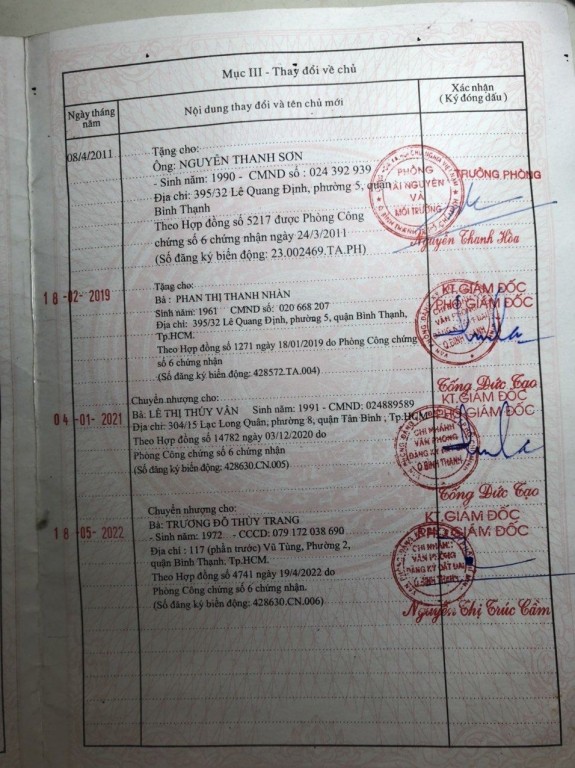 Mục III - Thay đổi về chủ
Ngày tháng năm
Nội dung thay đổi và tên chủ mới
Xác nhận
( Ký đóng dấu )
08/4/2011
Tặng cho:
Ông: NGUYỄN THANH SƠN
- Sinh năm: 1990 - CMND số : 024 392 939
Địa chỉ: 395/32 Lê Quang Định, phường 5, quận
Bình Thạnh
Theo Hợp đồng số 5217 được Phòng Công
chứng số 6 chứng nhận ngày 24/3/2011
(Số đăng ký biến động: 23.002469.TA.PH)
TRƯỞNG PHÒNG
PHÒNG
TÀI NGUYÊN
VÀ
MÔI TRƯỜNG
Nguyễn Thanh Hòa
18-02-2019
Tặng cho:
Bà : PHAN THỊ THANH NHÀN
Sinh năm: 1961 CMND số: 020 668 207
Địa chỉ: 395/32 Lê Quang Định, phường 5, quận Bình Thạnh,
Tp.HCM.
Theo Hợp đồng số 1271 ngày 18/01/2019 do Phòng Công chứng
số 6 chứng nhận
(Số đăng ký biến động: 428572.TA.004)
KT.GIÁM ĐỐC
PHÓ GIÁM ĐỐC
CHI NHÁNH
VĂN PHÒNG
ĐĂNG KÝ ĐẤT ĐAI
Q.BÌNH THẠNH
Tống Đức Tạo
04-01-2021
Chuyển nhượng cho:
Bà: LÊ THỊ THÙY VÂN Sinh năm: 1991 - CMND: 024889589
Địa chỉ: 304/15 Lạc Long Quân, phường 8, quận Tân Bình , Tp.HCM
Theo Hợp đồng số 14782 ngày 03/12/2020 do
Phòng Công chứng số 6 chứng nhận
(Số đăng ký biến động: 428630.CN.005)
KT.GIÁM ĐỐC
PHÓ GIÁM ĐỐC
CHI NHÁNH
VĂN PHÒNG
ĐĂNG KÝ ĐẤT ĐAI
Q.BÌNH THẠNH
Tống Đức Tạo
18-05-2022
Chuyển nhượng cho:
Bà: TRƯƠNG ĐỖ THÙY TRANG
- Sinh năm: 1972 - CCCD: 079 172 038 690
Địa chỉ : 117 (phần trước) Vũ Tùng, Phường 2,
quận Bình Thạnh, Tp.HCM.
Theo Hợp đồng số 4741 ngày 19/4/2022 do
Phòng Công chứng số 6 chứng nhận.
(Số đăng ký biến động: 428630.CN.006)
KT.GIÁM ĐỐC
PHÓ GIÁM ĐỐC
CHI NHÁNH
VĂN PHÒNG
ĐĂNG KÝ ĐẤT ĐAI
Q.BÌNH THẠNH
Nguyễn Thị Trúc Cầm